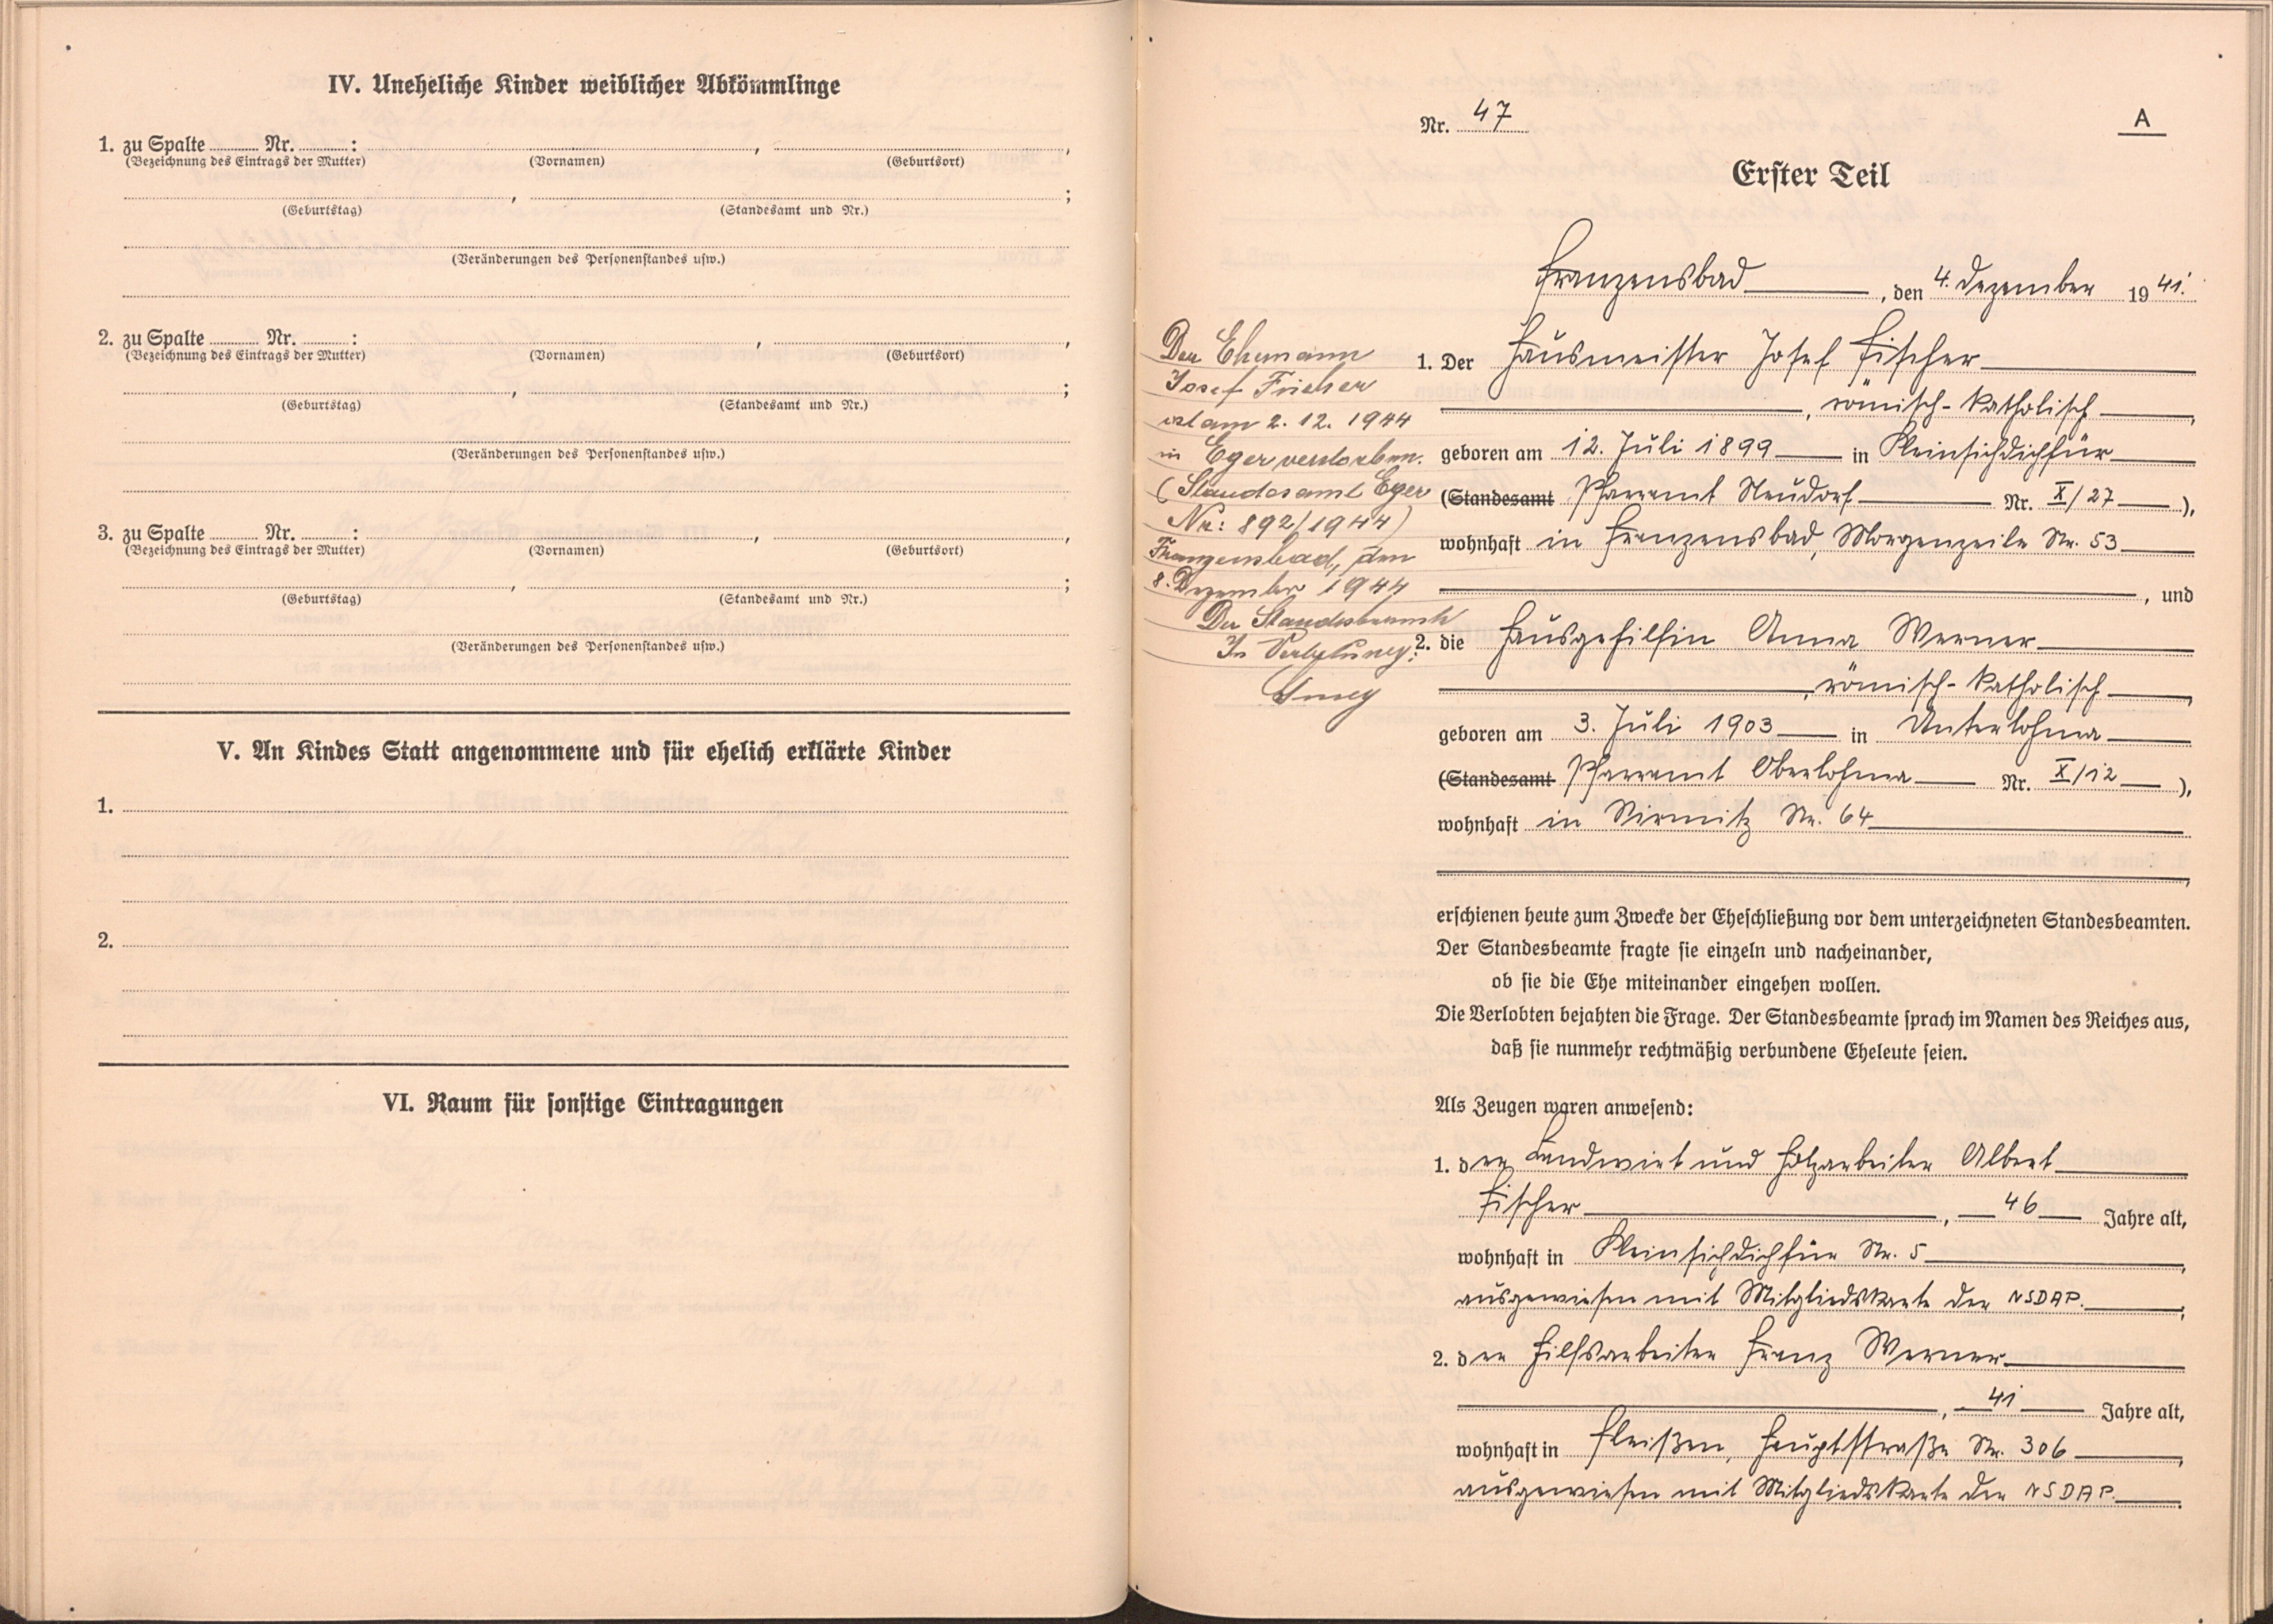 IV. Uneheliche Kinder weiblicher Abkömmlinge
1. zu Spalte Nr. : , ,
(Bezeichnung des Eintrags der Mutter) (Vornamen) (Geburtsort)
, ;
(Geburtstag) (Standesamt und Nr.)
(Veränderungen des Personenstandes usw.)
2. zu Spalte Nr. : , ,
(Bezeichnung des Eintrags der Mutter) (Vornamen) (Geburtsort)
, ;
(Geburtstag) (Standesamt und Nr.)
(Veränderungen des Personenstandes usw.)
3. zu Spalte Nr. : , ,
(Bezeichnung des Eintrags der Mutter) (Vornamen) (Geburtsort)
, ;
(Geburtstag) (Standesamt und Nr.)
(Veränderungen des Personenstandes usw.)
V. An Kindes Statt angenommene und für ehelich erklärte Kinder
1.
2.
VI. Raum für sonstige Eintragungen
Nr. 47
A
Erster Teil
Franzensbad, den 4. Dezember 1941.
Der Ehemann
Josef Fischer
ist am 2. 12. 1944
in Eger verstorben.
(Standesamt Eger
Nr: 892/1944)
Franzensbad, den
8. Dezember 1944
Der Standesbeamte
In Vertretung:
1. Der Hausmeister Josef Fischer
, römisch-katholisch,
geboren am 12. Juli 1899 in Kleinsichdichfür
(Standesamt Pfarramt Neudorf Nr. X/27),
wohnhaft in Franzensbad, Morgenzeile Nr. 53
, und
2. die Hausgehilfin Anna Werner
, römisch-katholisch,
geboren am 3. Juli 1903 in Unterlohma
(Standesamt Pfarramt Oberlohma Nr. X/12),
wohnhaft in Sirmitz Nr. 64
,
erschienen heute zum Zwecke der Eheschließung vor dem unterzeichneten Standesbeamten.
Der Standesbeamte fragte sie einzeln und nacheinander,
ob sie die Ehe miteinander eingehen wollen.
Die Verlobten bejahten die Frage. Der Standesbeamte sprach im Namen des Reiches aus,
daß sie nunmehr rechtmäßig verbundene Eheleute seien.
Als Zeugen waren anwesend:
1. der Landwirt und Holzarbeiter Albert
Fischer, 46 Jahre alt,
wohnhaft in Kleinsichdichfür Nr. 5,
ausgewiesen mit Mitgliedskarte der NSDAP.;
2. der Hilfsarbeiter Franz Werner
, 41 Jahre alt,
wohnhaft in Fleißen, Hauptstraße Nr. 306,
ausgewiesen mit Mitgliedskarte der NSDAP.